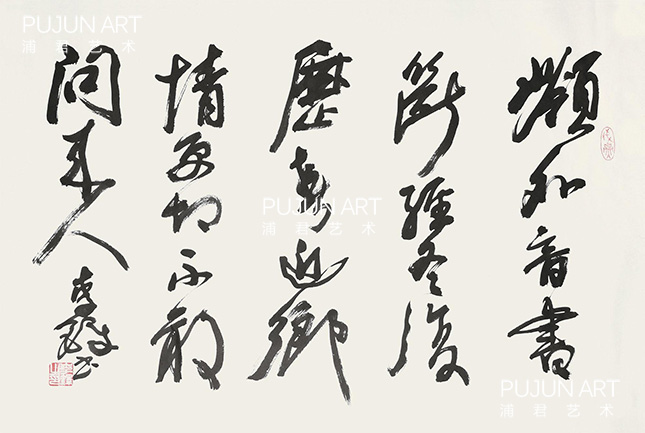 PUJUN ART
浦君艺术
嶺外音書
斷經冬復
歷春近鄉
情更怯不敢
問來人
PUJUN ART
浦君艺术
PUJUN ART
浦君艺术